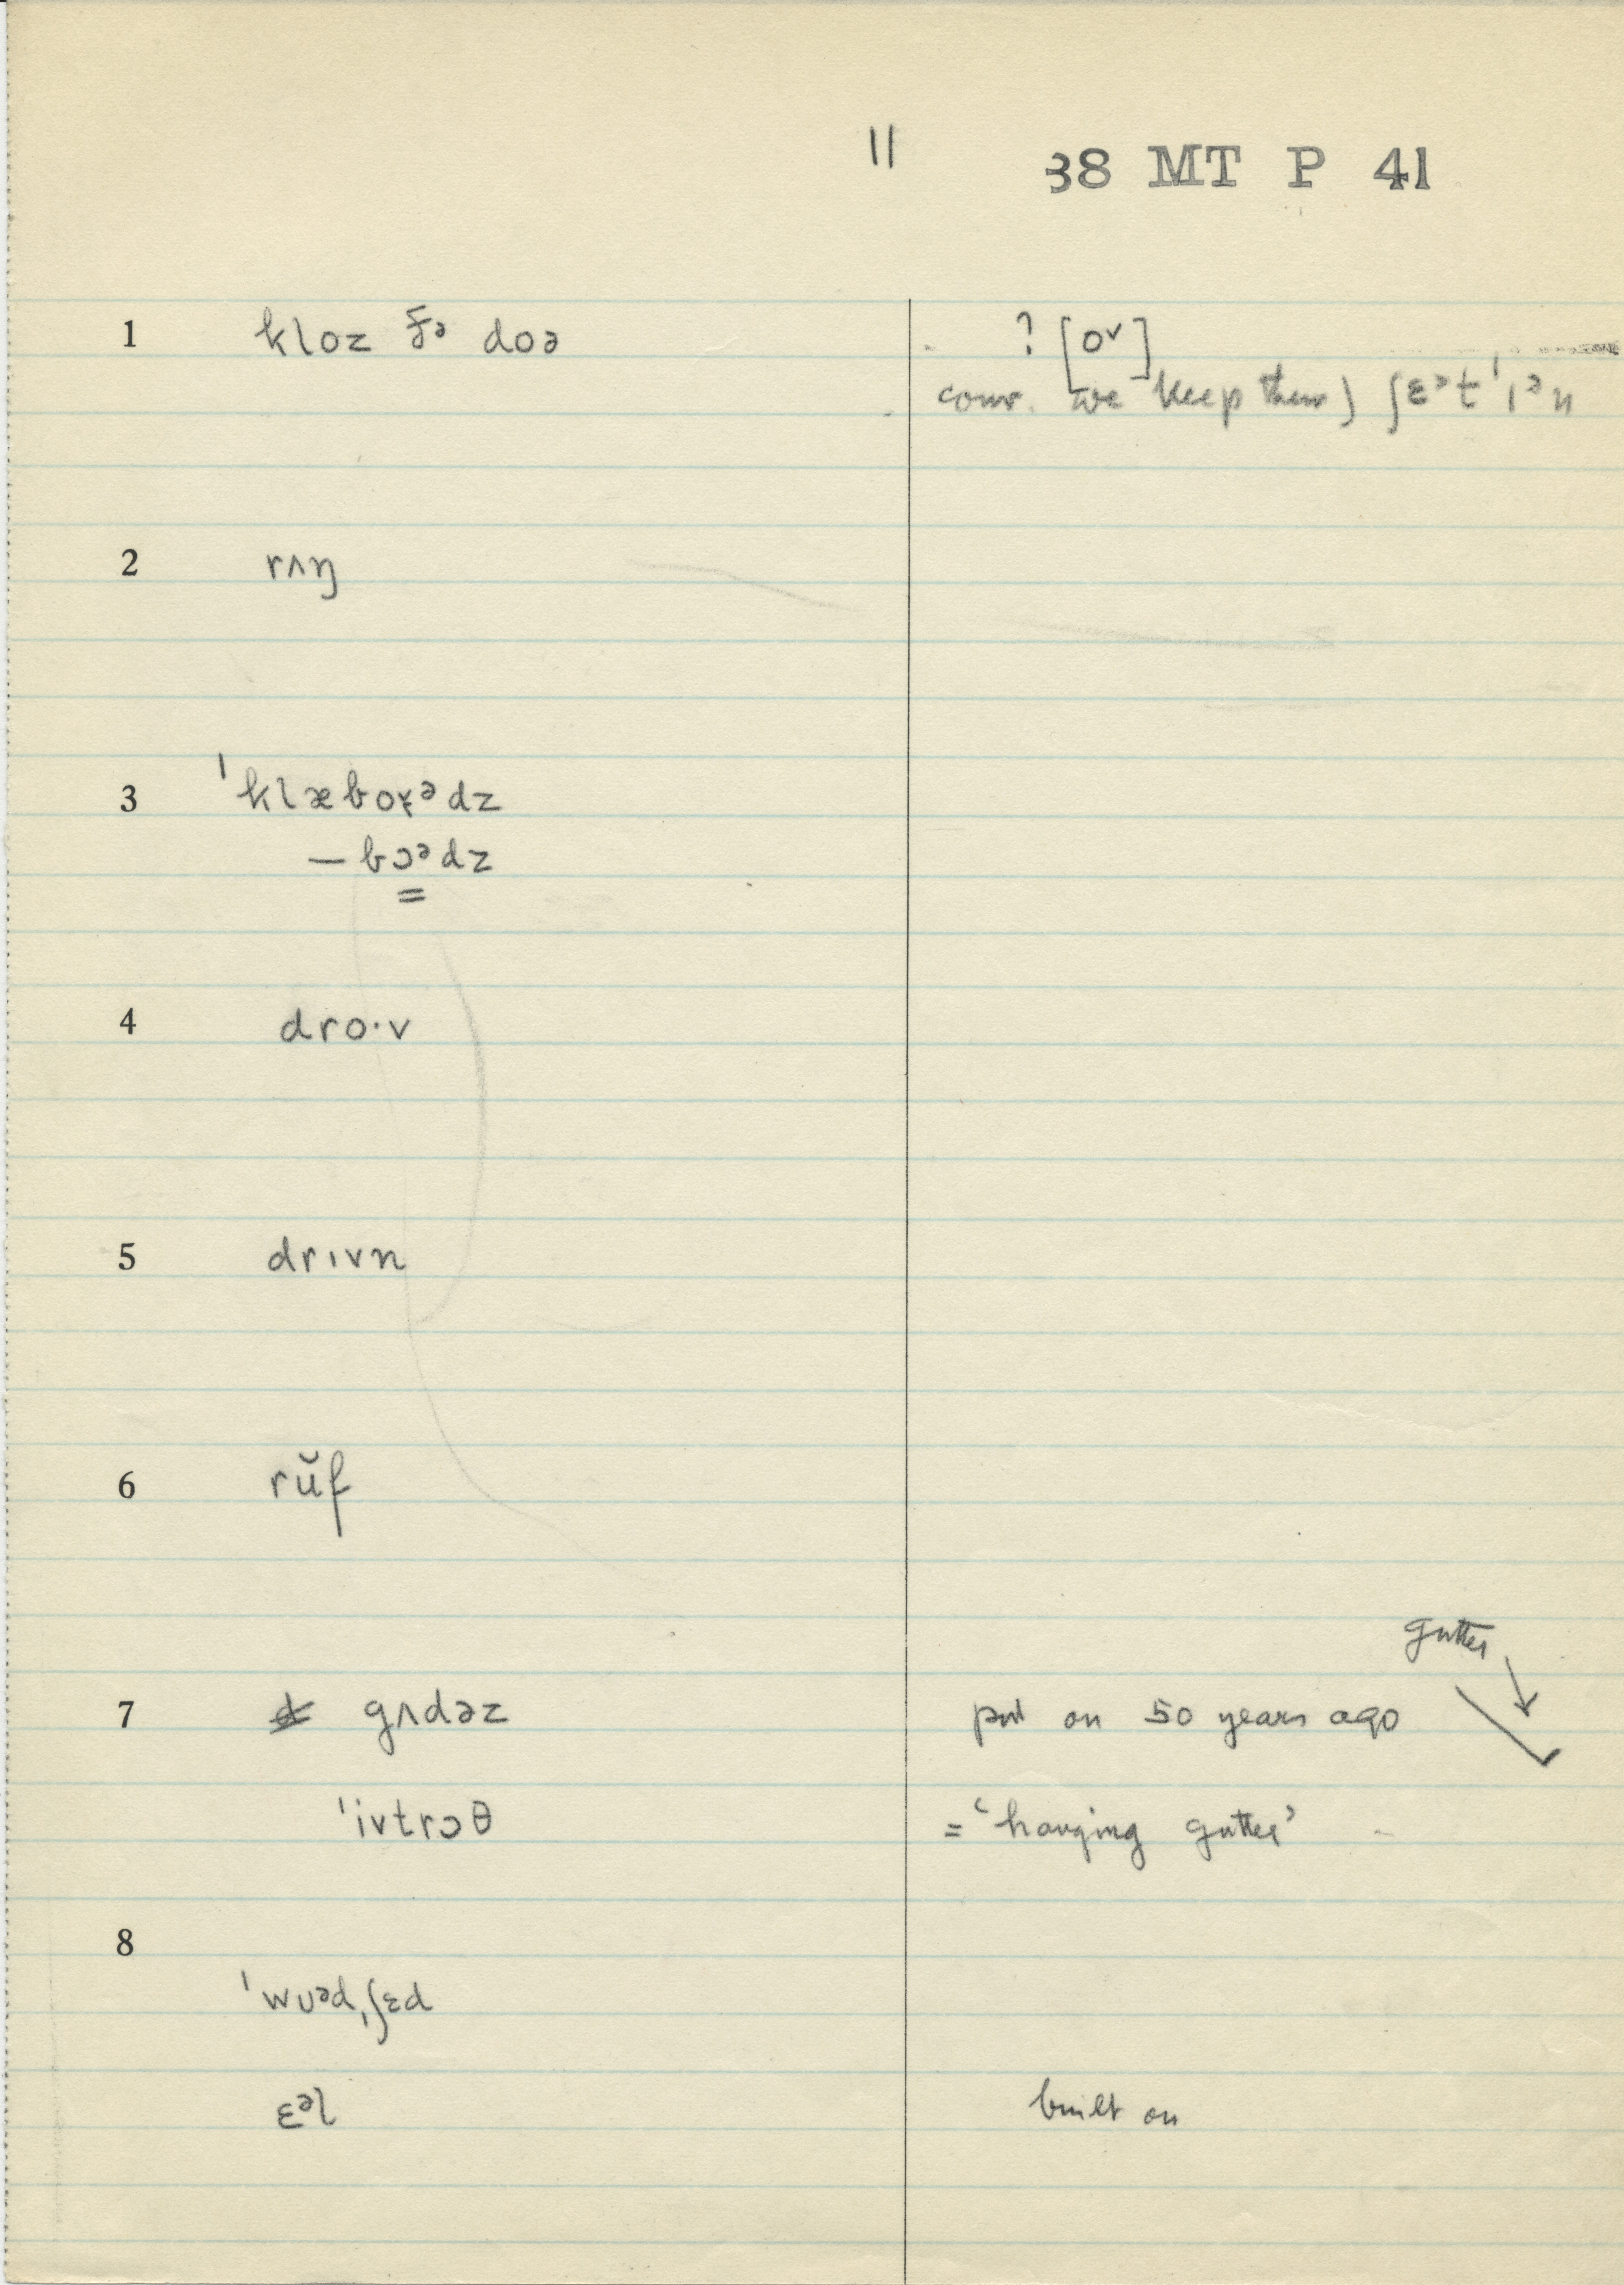 11 38 MT P 41
1 kloz ðə doə ? [o˅]
conv. we keep them) ʃɛᵊt ˈɪᵊn
2 rʌŋ
3 ˈklæboɤᵊdz
— bɔᵊdz
4 dro·v
5 drɪvn
6 rŭf
gutter
7 gʌdəz put on 50 years ago
ˈivtrɔθ = ‘hanging gutter’
8
ˈwʊᵊdˌʃɛd
ɛᵊl built on